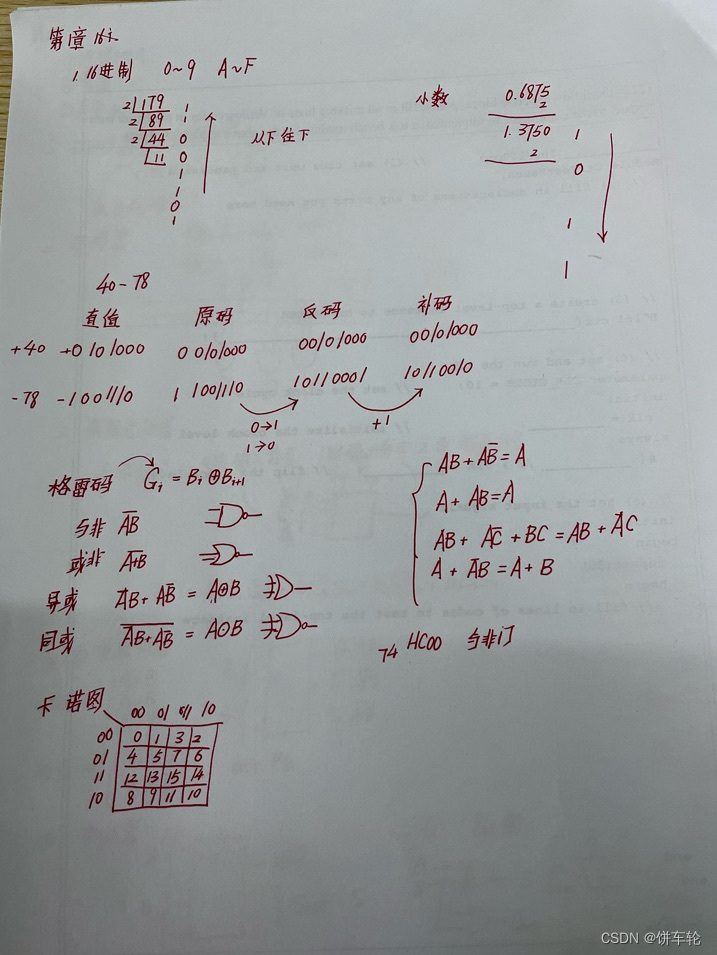 1. 16进制 0~9 A~F
2 179 1
2 89 1
2 44 0
11 0
1
1
0
1
从下往下
小数 0.6875
2
1.3750 1
2
0
1
1
40-78
真值 原码 反码 补码
+40 +0101000 00101000 00101000 00101000
-78 -1001110 1 1001110 10110001 10110010
0→1
1→0
+1
格雷码 Gi = Bi ⊕ Bi+1
与非 A̅B̅
或非 A̅+̅B̅
异或 A̅B + AB̅ = A⊕B
同或 = A⊙B
AB + AB̅ = A
A + AB = A
AB + A̅C + BC = AB + A̅C
A + A̅B = A + B
74 HC00 与非门
卡诺图
00 01 11 10
00 0 1 3 2
01 4 5 7 6
11 12 13 15 14
10 8 9 11 10
CSDN @饼车轮